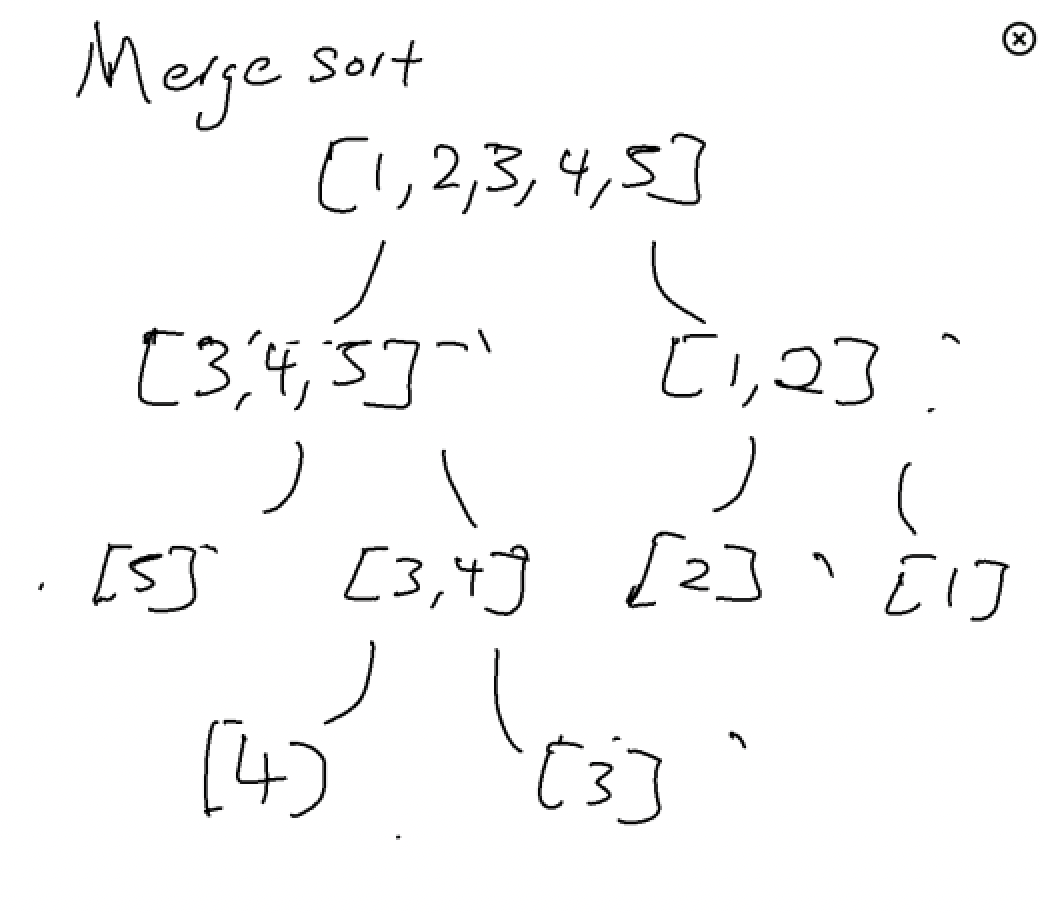 Merge sort
[1,2,3,4,5]
[3,4,5] [1,2]
[5] [3,4] [2] [1]
[4) [3]